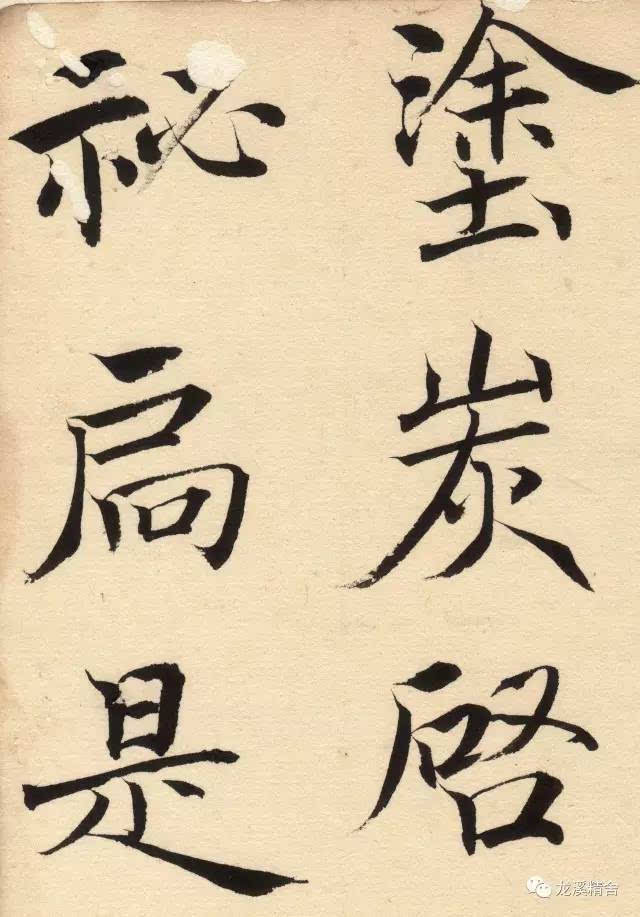 塗炭啓
祕扃是
龙溪精舍